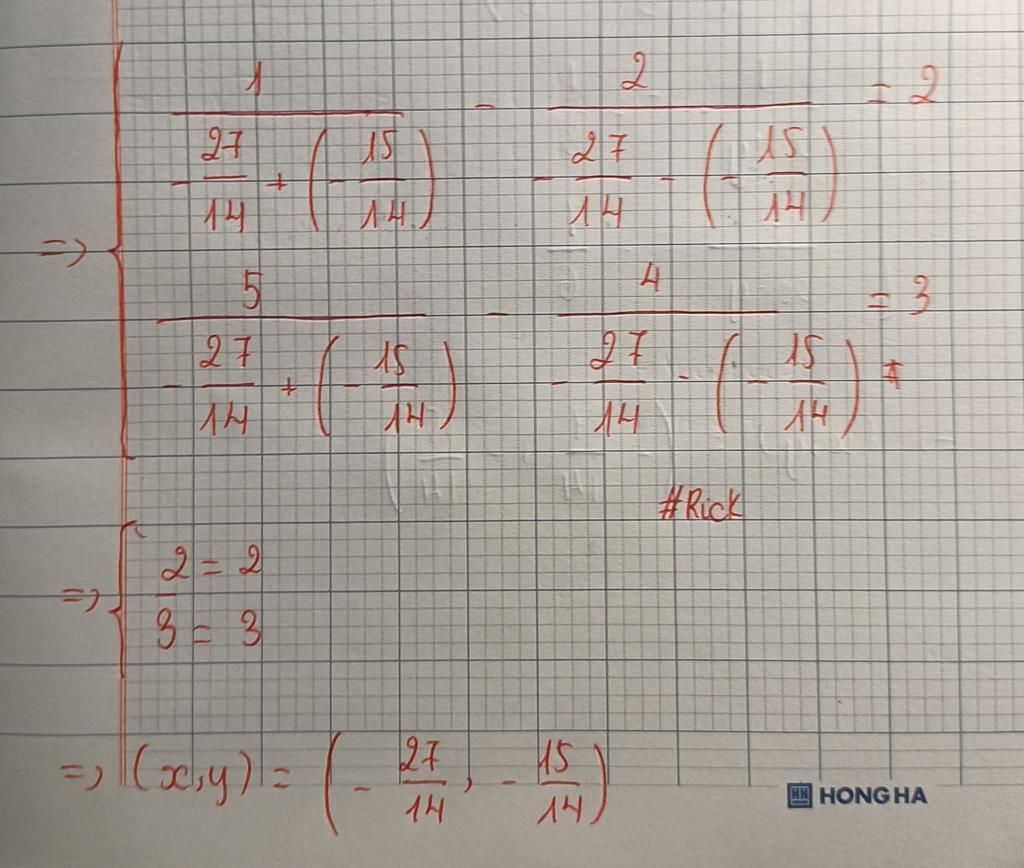 1 / (- 27/14 + (- 15/14)) - 2 / (- 27/14 - (- 15/14)) = 2
=> 5 / (- 27/14 + (- 15/14)) - 4 / (- 27/14 - (- 15/14)) = 3
#Rick
=> 2 = 2
3 = 3
=> (x,y) = (- 27/14, - 15/14)
HONG HA